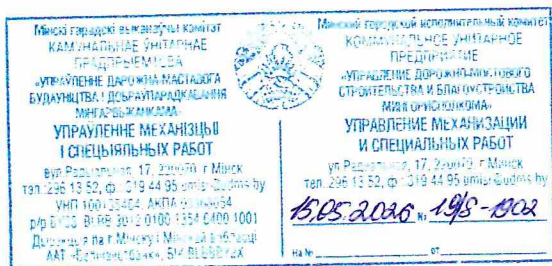 Мінскі гарадскі выканаўчы камітэт
КАМУНАЛЬНАЕ УНІТАРНАЕ
ПРАДПРЫЕМСТВА
«УПРАЎЛЕННЕ ДАРОЖНА-МАСТАВОГА
БУДАЎНІЦТВА І ДОБРАЎПАРАДКАВАННЯ
МІНГАРВЫКАНКАМА»
УПРАЎЛЕННЕ МЕХАНІЗЦЫІ
І СПЕЦЫЯЛЬНЫХ РАБОТ
вул. Радыяльная, 17, 220070, г. Мінск
тэл. 296 13 52, ф. 319 44 95
УНП
р/р
Дырэкцыя па г. Мінску і Мінскай вобласці
ААТ
Минский городской исполнительный комитет
КОММУНАЛЬНОЕ УНИТАРНОЕ
ПРЕДПРИЯТИЕ
«УПРАВЛЕНИЕ ДОРОЖНО-МОСТОВОГО
СТРОИТЕЛЬСТВА И БЛАГОУСТРОЙСТВА
МИНГОРИСПОЛКОМА»
УПРАВЛЕНИЕ МЕХАНИЗАЦИИ
И СПЕЦИАЛЬНЫХ РАБОТ
ул. Радиальная, 17, 220070, г. Минск
тел. 296 13 52, ф. 319 44 95
15.05.2026 № 19/5-1902
На № от